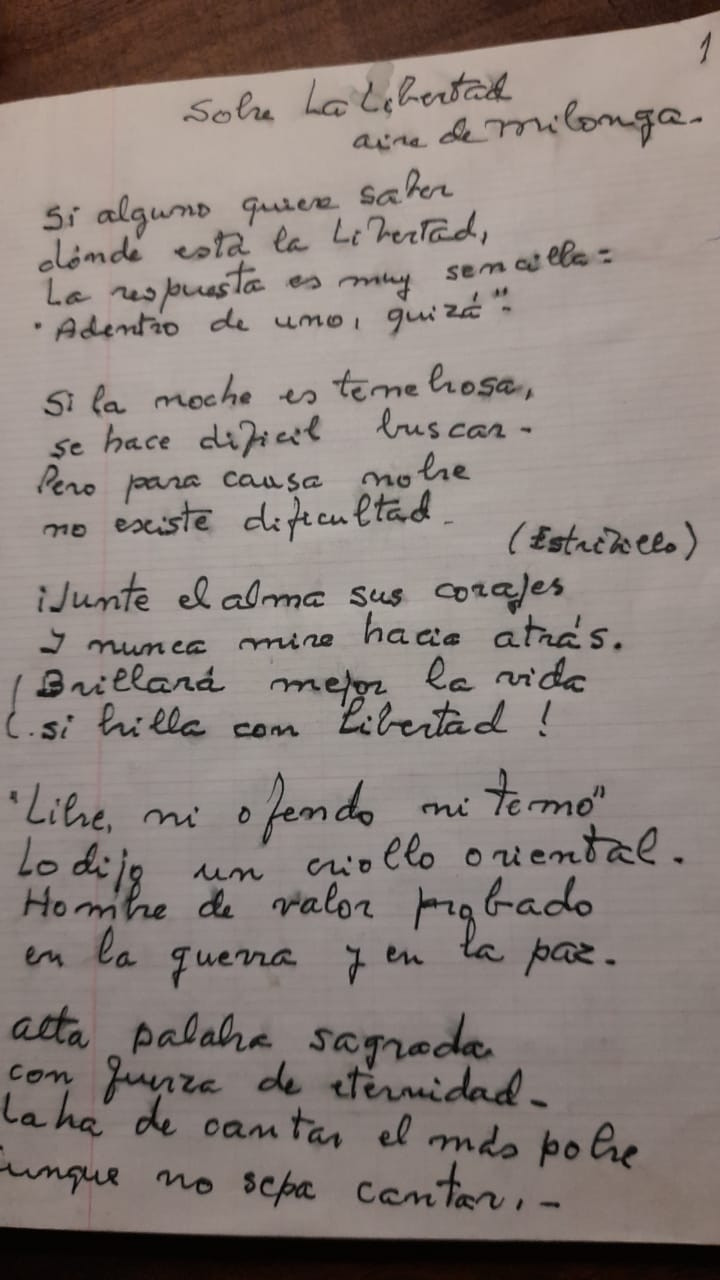 1
Sobre La Libertad
aire de milonga.
Si alguno quiere saber
dónde está la Libertad,
La respuesta es muy sencilla:
"Adentro de uno, quizá".
Si la noche es tenebrosa,
se hace difícil buscar -
Pero para causa noble
no existe dificultad -
(Estribillo)
¡Junte el alma sus corajes
Y nunca mire hacia atrás.
Brillará mejor la vida
si brilla con Libertad!
"Libre, ni ofendo ni temo"
Lo dijo un criollo oriental.
Hombre de valor probado
en la guerra y en la paz.
alta palabra sagrada
con fuerza de eternidad -
La ha de cantar el más pobre
unque no sepa cantar. -